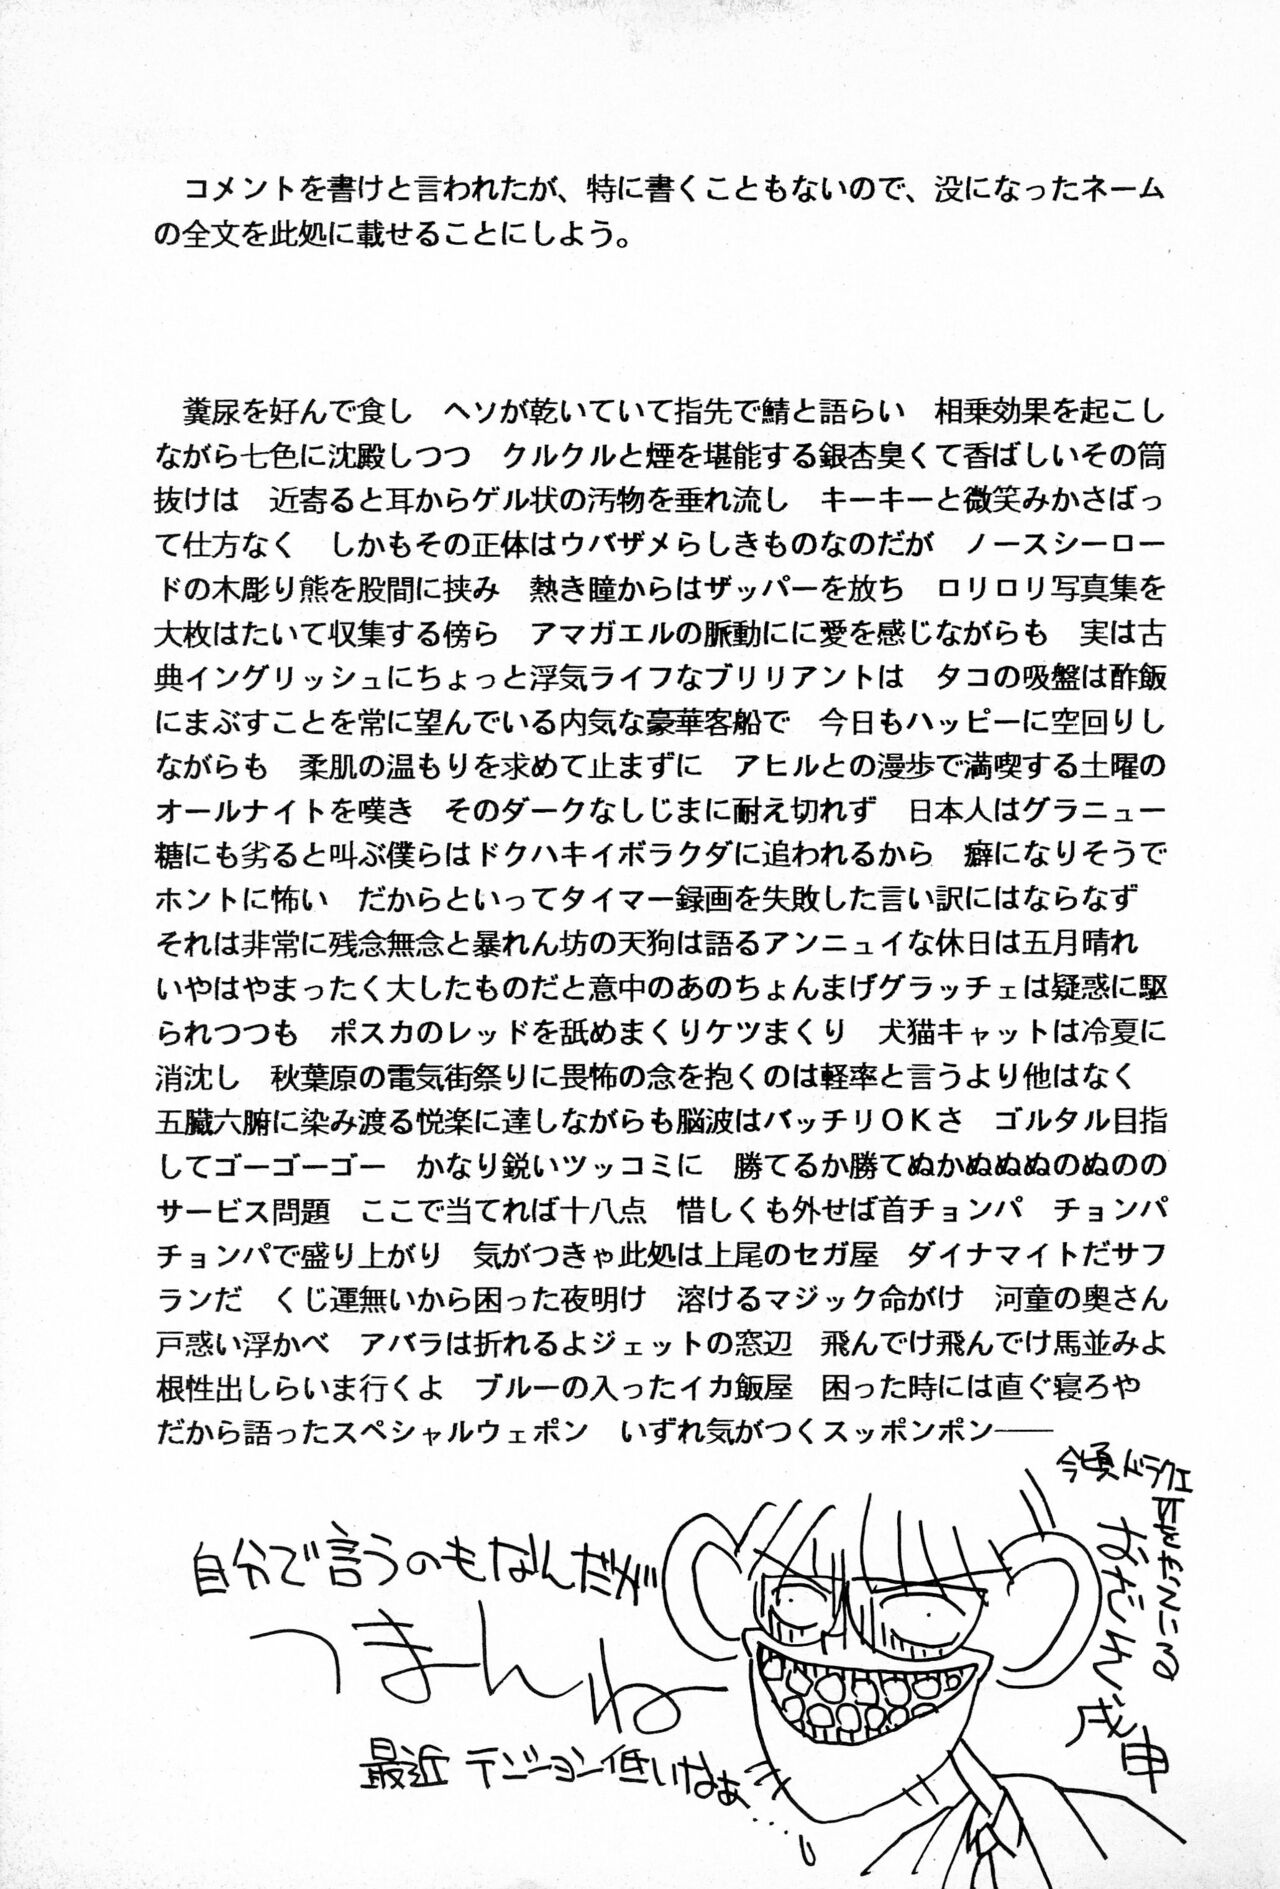 コメントを書けと言われたが、特に書くこともないので、没になったネーム
の全文を此処に載せることにしよう。
糞尿を好んで食し　ヘソが乾いていて指先で鯖と語らい　相乗効果を起こし
ながら七色に沈殿しつつ　クルクルと煙を堪能する銀杏臭くて香ばしいその筒
抜けは　近寄ると耳からゲル状の汚物を垂れ流し　キーキーと微笑みかさばっ
て仕方なく　しかもその正体はウバザメらしきものなのだが　ノースシーロー
ドの木彫り熊を股間に挟み　熱き瞳からはザッパーを放ち　ロリロリ写真集を
大枚はたいて収集する傍ら　アマガエルの脈動にに愛を感じながらも　実は古
典イングリッシュにちょっと浮気ライフなブリリアントは　タコの吸盤は酢飯
にまぶすことを常に望んでいる内気な豪華客船で　今日もハッピーに空回りし
ながらも　柔肌の温もりを求めて止まずに　アヒルとの漫歩で満喫する土曜の
オールナイトを嘆き　そのダークなしじまに耐え切れず　日本人はグラニュー
糖にも劣ると叫ぶ僕らはドクハキイボラクダに追われるから　癖になりそうで
ホントに怖い　だからといってタイマー録画を失敗した言い訳にはならなず
それは非常に残念無念と暴れん坊の天狗は語るアンニュイな休日は五月晴れ
いやはやまったく大したものだと意中のあのちょんまげグラッチェは疑惑に駆
られつつも　ポスカのレッドを舐めまくりケツまくり　犬猫キャットは冷夏に
消沈し　秋葉原の電気街祭りに畏怖の念を抱くのは軽率と言うより他はなく
五臓六腑に染み渡る悦楽に達しながらも脳波はバッチリＯＫさ　ゴルタル目指
してゴーゴーゴー　かなり鋭いツッコミに　勝てるか勝てぬかぬぬぬのぬのの
サービス問題　ここで当てれば十八点　惜しくも外せば首チョンパ　チョンパ
チョンパで盛り上がり　気がつきゃ此処は上尾のセガ屋　ダイナマイトだサフ
ランだ　くじ運無いから困った夜明け　溶けるマジック命がけ　河童の奥さん
戸惑い浮かべ　アバラは折れるよジェットの窓辺　飛んでけ飛んでけ馬並みよ
根性出しらいま行くよ　ブルーの入ったイカ飯屋　困った時には直ぐ寝ろや
だから語ったスペシャルウェポン　いずれ気がつくスッポンポン――
今頃ドラクエ
Ⅵをやっている
おだわら戌申
自分で言うのもなんだが
つまんね
最近テンション低いなぁ…